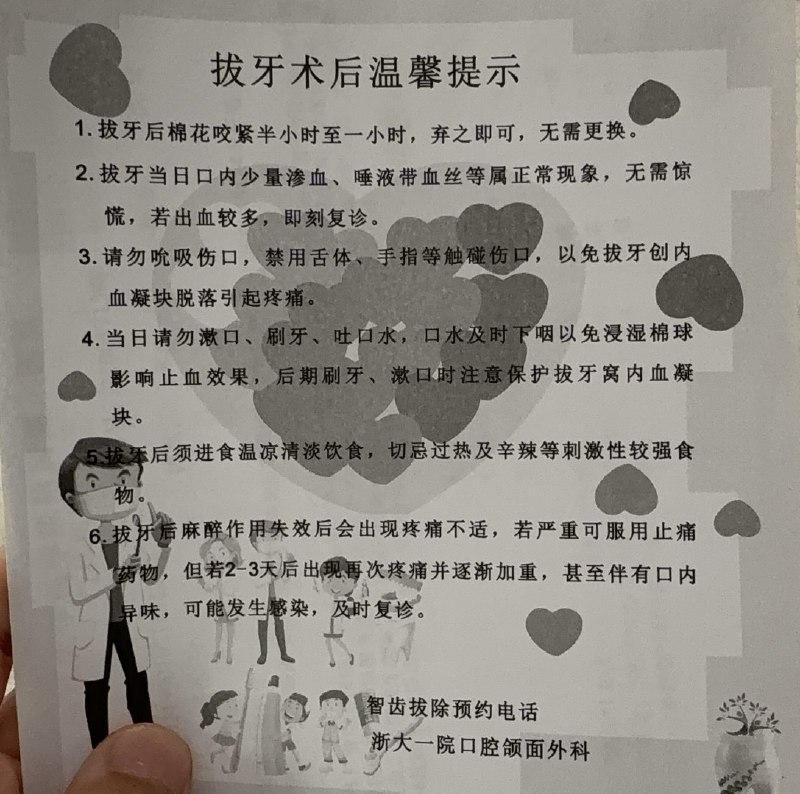 拔牙术后温馨提示
1.拔牙后棉花咬紧半小时至一小时，弃之即可，无需更换。
2.拔牙当日口内少量渗血、唾液带血丝等属正常现象，无需惊
慌，若出血较多，即刻复诊。
3.请勿吮吸伤口，禁用舌体、手指等触碰伤口，以免拔牙创内
血凝块脱落引起疼痛。
4.当日请勿漱口、刷牙、吐口水，口水及时下咽以免浸湿棉球
影响止血效果，后期刷牙、漱口时注意保护拔牙窝内血凝
块。
5.拔牙后须进食温凉清淡饮食，切忌过热及辛辣等刺激性较强食
物。
6.拔牙后麻醉作用失效后会出现疼痛不适，若严重可服用止痛
药物，但若2-3天后出现再次疼痛并逐渐加重，甚至伴有口内
异味，可能发生感染，及时复诊。
智齿拔除预约电话
浙大一院口腔颌面外科